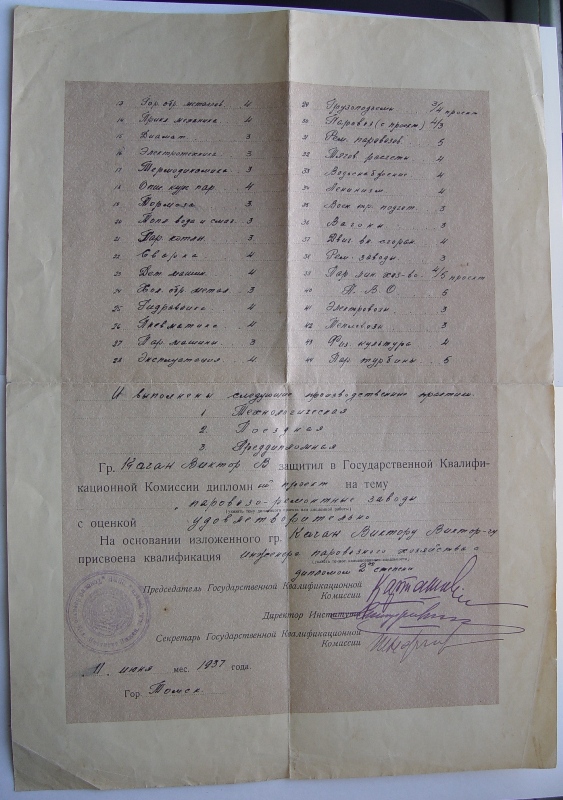 13 Гор. обр. металлов 4
14 Прикл механика 4
15 Диамат 3
16 Электротехника 3
17 Термодинамика 3
18 Опис. курс пар. 4
19 Тормоза 3
20 Топл вода и смаз. 3
21 Пар. котлы 3
22 Сварка 4
23 Дет машин 4
24 Хол. обр. метал. 3
25 Гидравлика 4
26 Пневматика 4
27 Пар. машины 3
28 Эксплуатация 4
29 Грузоподъемн 3/4 проект
30 Паровоз (с проект) 4/3
31 Рем. паровозов 5
32 Тягов расчеты 4
33 Водоснабжение 4
34 Ленинизм 4
35 подгот. 3
36 Вагоны 3
37 Двиг вн. сгоран. 4
38 Рем. заводы 3
39 Пар. хоз-во 4/5 проект
40 П. В. О. 5
41 Электровозы 3
42 Тепловозы 3
43 Физ культура 4
44 Пар. турбины 5
И выполнены следующие производственные практики
1 Технологическая
2. Поездная
3. Преддипломная
Гр. Каган Виктор В. защитил в Государственной Квалифи-
кационной Комиссии дипломный проект на тему
„паровозо-ремонтные заводы
с оценкой удовлетворительно
На основании изложенного гр. Каган Виктору Виктор-чу
присвоена квалификация инженера паровозного хозяйства с
дипломом 2ой степени
Председатель Государственной Квалификационной
Комиссии
Директор Института
Секретарь Государственной Квалификационной
Комиссии
„11" июня мес. 1937 года.
Гор. Томск